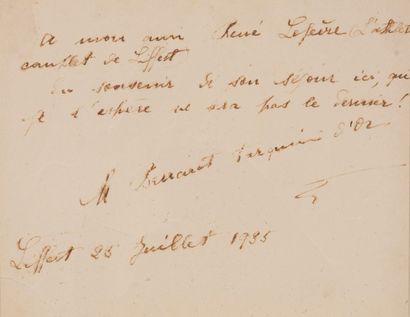 A mon ami René Lefèvre L'
complet de Liffert
En souvenir de son séjour ici, qui
je l'espère ne sera pas le dernier !
M Tarquini d'Or
Liffert 25 Juillet 1935